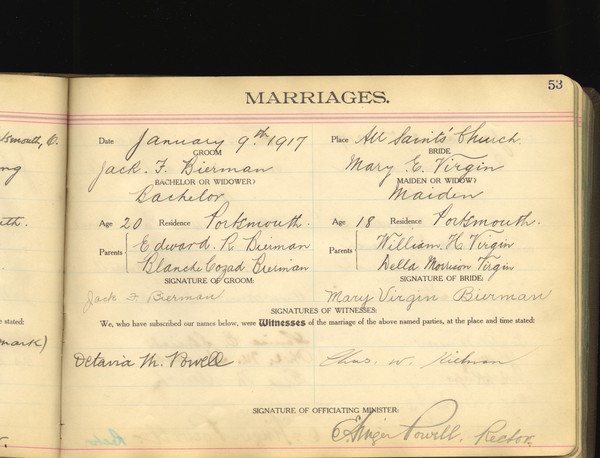 53
MARRIAGES.
Date January 9th 1917 Place All Saints' Church
GROOM BRIDE
Jack. F. Bierman Mary E. Virgin
BACHELOR OR WIDOWER? MAIDEN OR WIDOW?
Bachelor Maiden
Age 20 Residence Portsmouth. Age 18 Residence Portsmouth.
Parents Edward. R. Bierman William. H. Virgin
Blanche Cozad Bierman Della Morrison Virgin
SIGNATURE OF GROOM: SIGNATURE OF BRIDE:
Jack F Bierman Mary Virgin Bierman
SIGNATURES OF WITNESSES:
We, who have subscribed our names below, were Witnesses of the marriage of the above named parties, at the place and time stated:
Octavia M. Powell Chas. W.
SIGNATURE OF OFFICIATING MINISTER:
Powell, Rector.